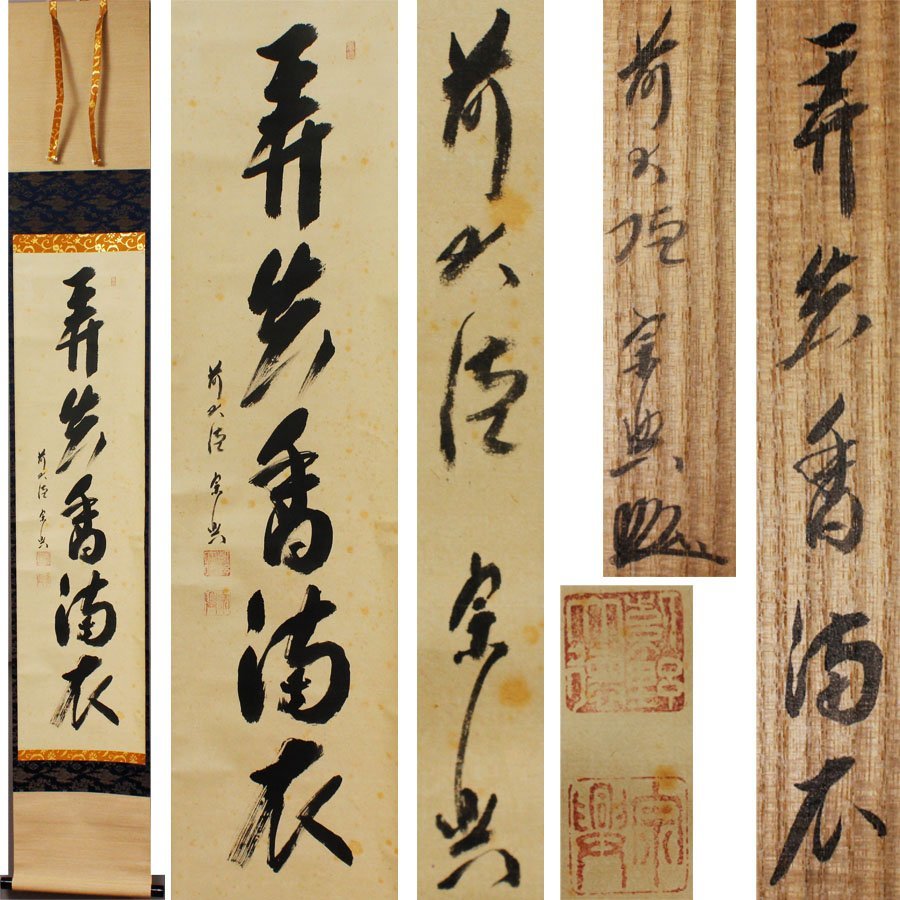 弄花香満衣
前大徳 宗興
弄花香満衣
前大徳 宗興
前大徳 宗興
前大徳 宗興
弄花香満衣